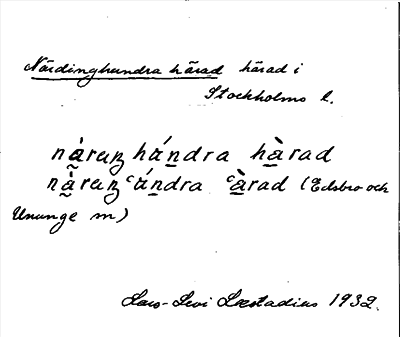 Närdinghundra härad härad i
Stockholms l.
nà̰raŋ há́n̲dra hà̲rad
nà̰raŋ ʿán̲dra ʿà̲rad (Edsbro och
Ununge m)
Lars-Levi Læstadius 1932.